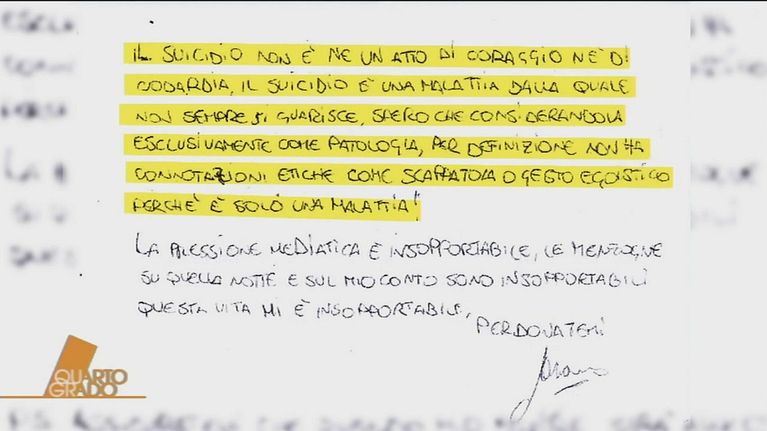 IL SUICIDIO NON È NE UN ATTO DI CORAGGIO NÈ DI
CODARDIA, IL SUICIDIO È UNA MALATTIA DALLA QUALE
NON SEMPRE SI GUARISCE, SPERO CHE CONSIDERANDOLA
ESCLUSIVAMENTE COME PATOLOGIA, PER DEFINIZIONE NON HA
CONNOTAZIONI ETICHE COME SCAPPATOIA O GESTO EGOISTICO
PERCHÈ È SOLO UNA MALATTIA!
LA PRESSIONE MEDIATICA È INSOPPORTABILE, LE MENZOGNE
SU QUELLA NOTTE E SUL MIO CONTO SONO INSOPPORTABILI
QUESTA VITA MI È INSOPPORTABILE,
PERDONATEMI
QUARTO
GRADO